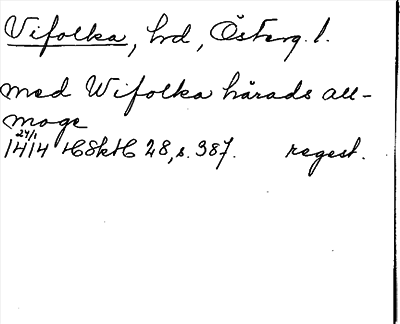 Vifolka, hrd, Österg. l.
med Wifolka härads all-
moge
24/1
1414 HSkH 28, s. 387. regest.